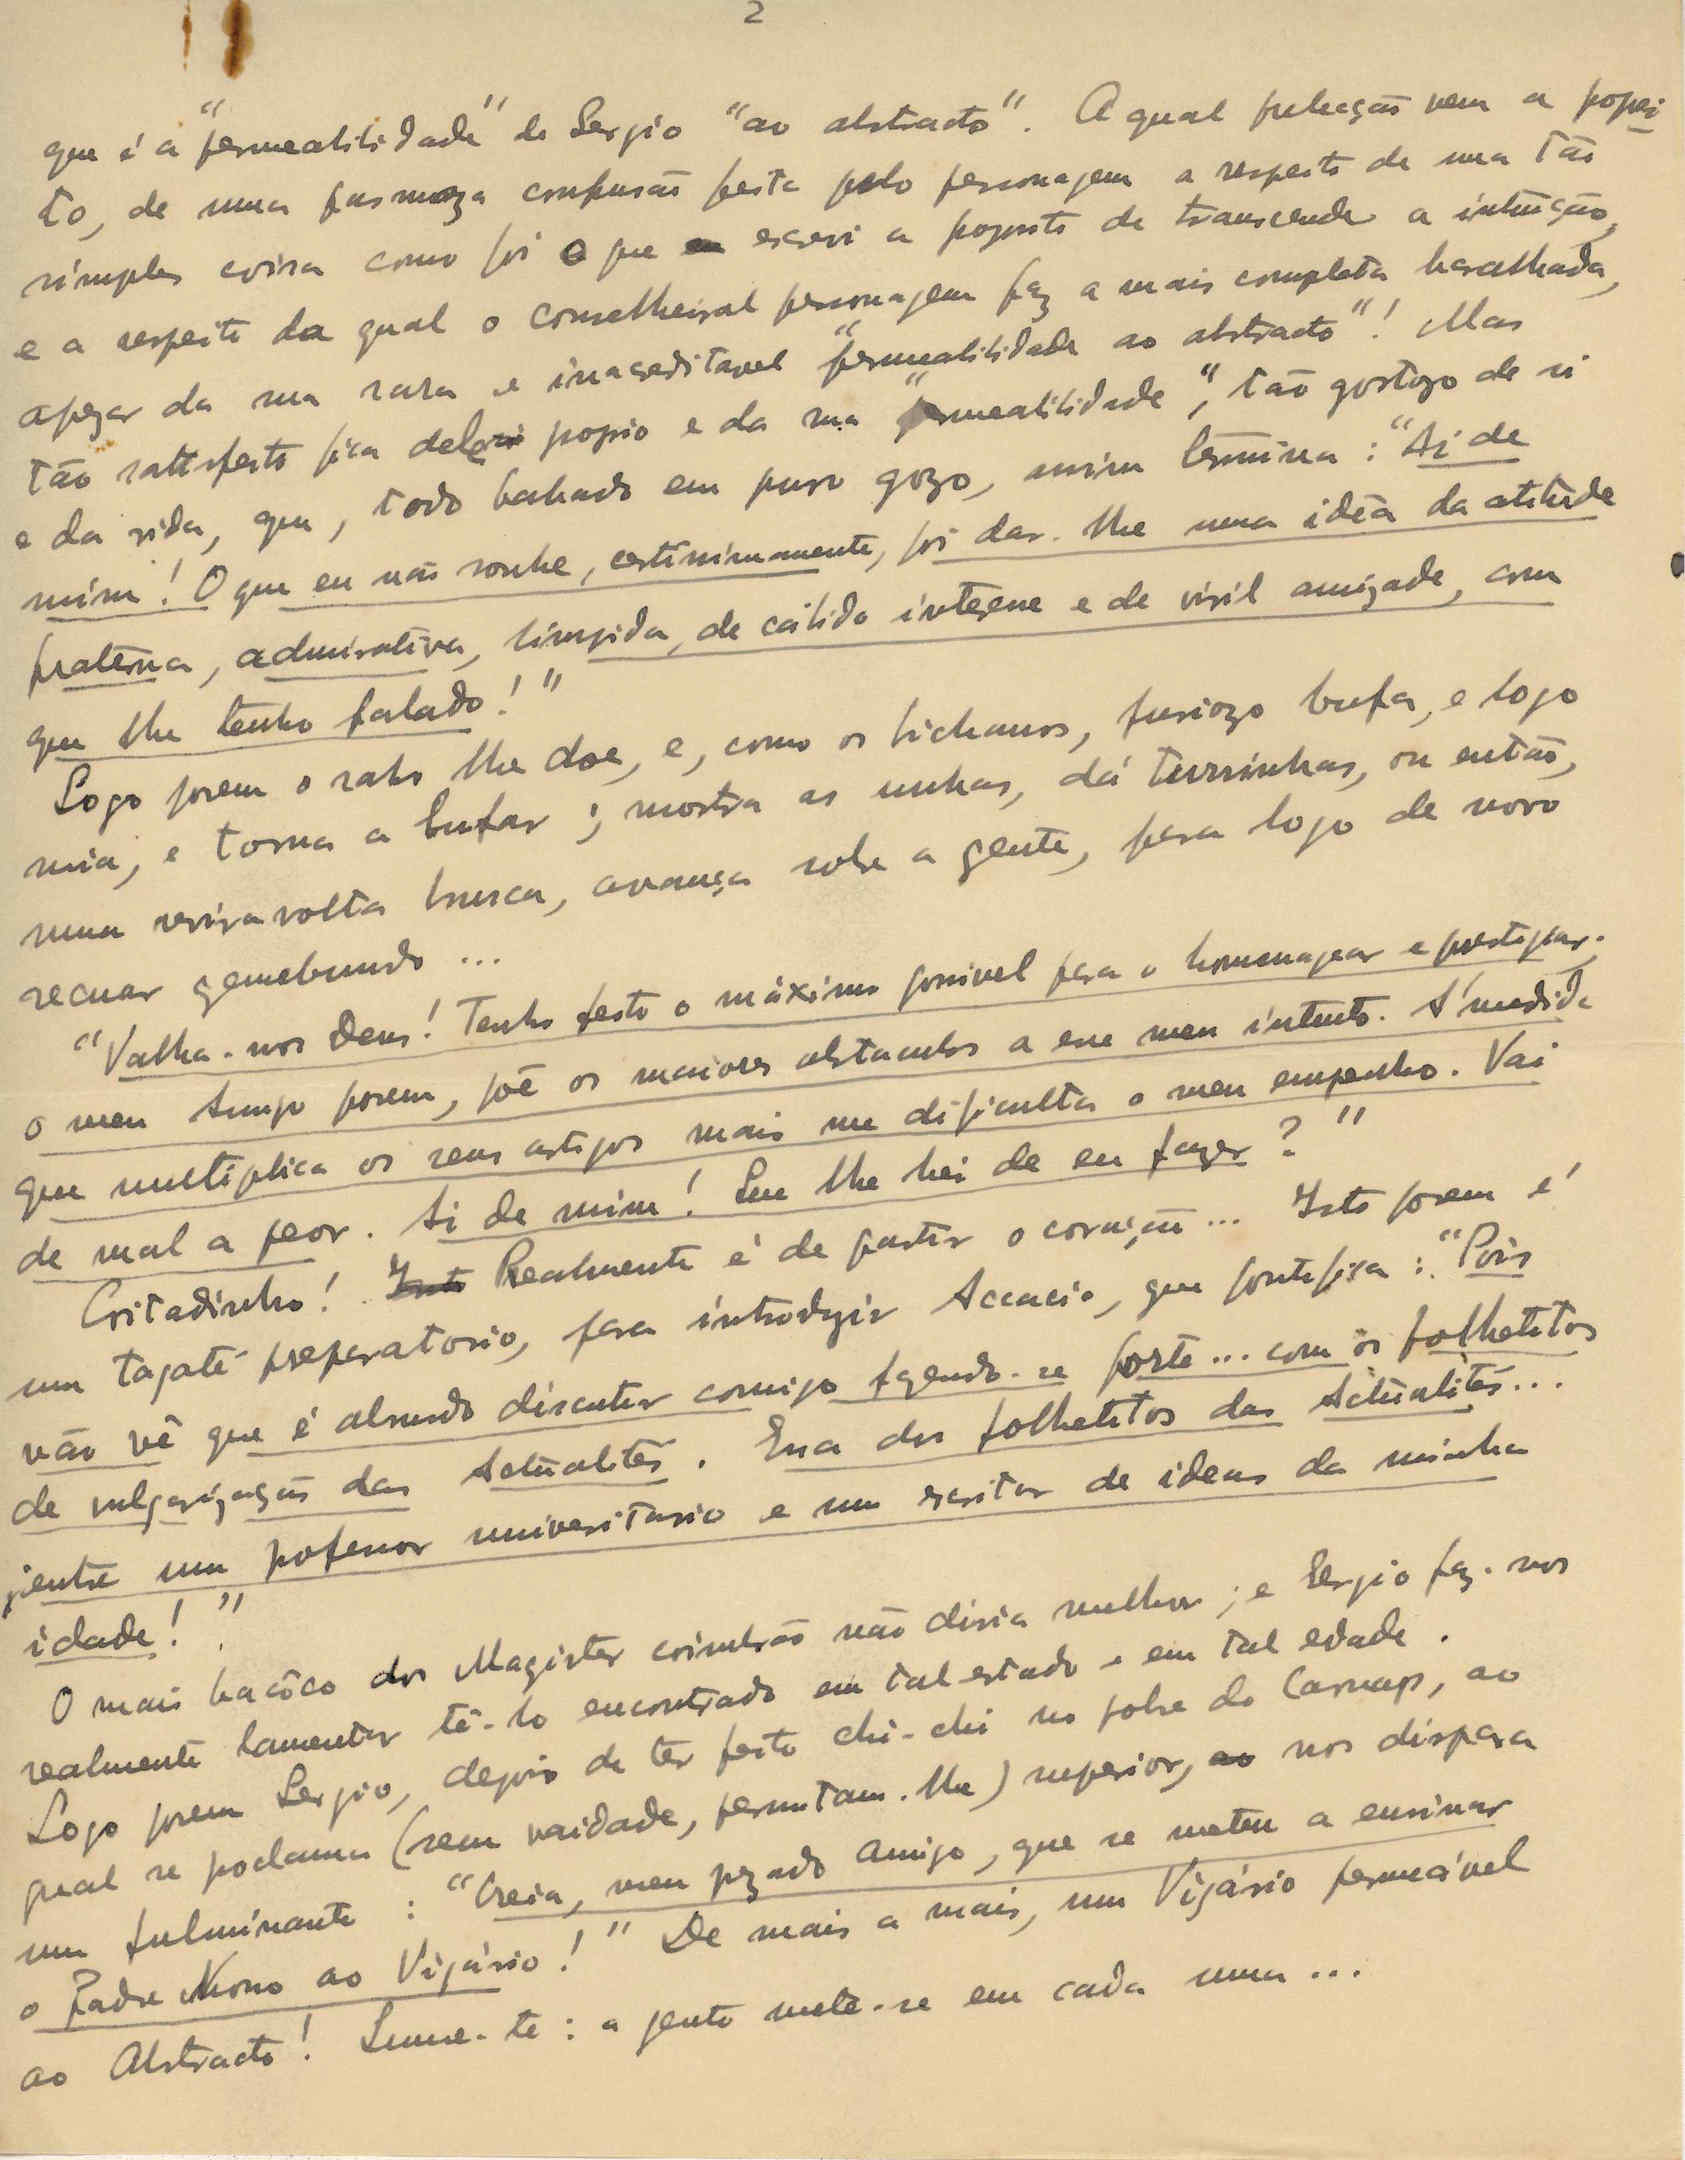 2
que é a "permeabilidade" de Sergio "ao abstracto". A qual prelecção vem a propozi-
to, de uma pasmoza confusão feita pelo personagem a respeito de uma tão
simples coisa como foi o que escrevi a proposito de transcender a intuição,
e a respeito da qual o conselheiral personagem faz a mais completa baralhada,
apezar da sua rara e inacreditavel "permeabilidade ao abstracto"! Mas
tão satisfeito fica dele proprio e da sua "permeabilidade", tão gostozo de si
e da vida, que, todo babado em puro gozo, assim termina: "Ai de
mim! O que eu não soube, certissimamente, foi dar-lhe uma idea da atitude
fraterna, admirativa, limpida, de cálido interesse e de viril amizade, com
que lhe tenho falado!"
Logo porem o rabo lhe doe, e, como os bichanos, furiozo bufa, e logo
mia, e torna a bufar; mostra as unhas, dá turrinhas, ou então,
numa reviravolta brusca, avança sobre a gente, para logo de novo
recuar gemebundo ...
"Valha-nos Deus! Tenho feito o máximo possivel para o homenagear e prestigiar.
o meu Amigo porem, põe os maiores obstaculos a esse meu intento. Á medida
que multiplica os seus artigos mais me dificulta o meu empenho. Vai
de mal a peor. Ai de mim! Que lhe hei de eu fazer?"
Coitadinho! Realmente é de partir o coração... Isto porem é
um tagaté preparatorio, para introduzir Accacio, que pontifica: "Pois
não vê que é absurdo discutir comigo fazendo-se forte... com os folhetitos
de vulgarização das Actualités. Essa dos folhetitos das Actualités...
entre um professor universitario e um escritor de ideas da minha
idade!"
O mais bacôco dos Magister coimbrão não diria melhor; e Sergio faz-nos
realmente lamentar tê-lo encontrado em tal estado e em tal edade.
Logo porem Sergio, depois de ter feito chi-chi no pobre do Carnap, ao
qual se proclama (sem vaidade, permitam-lhe) superior, nos dispara
um fulminante: "Creia, meu prezado amigo, que se meteu a ensinar
o Padre Nosso ao Vigário!" De mais a mais, um Vigário permeável
ao Abstracto! Sume-te: a gente mete-se em cada uma...